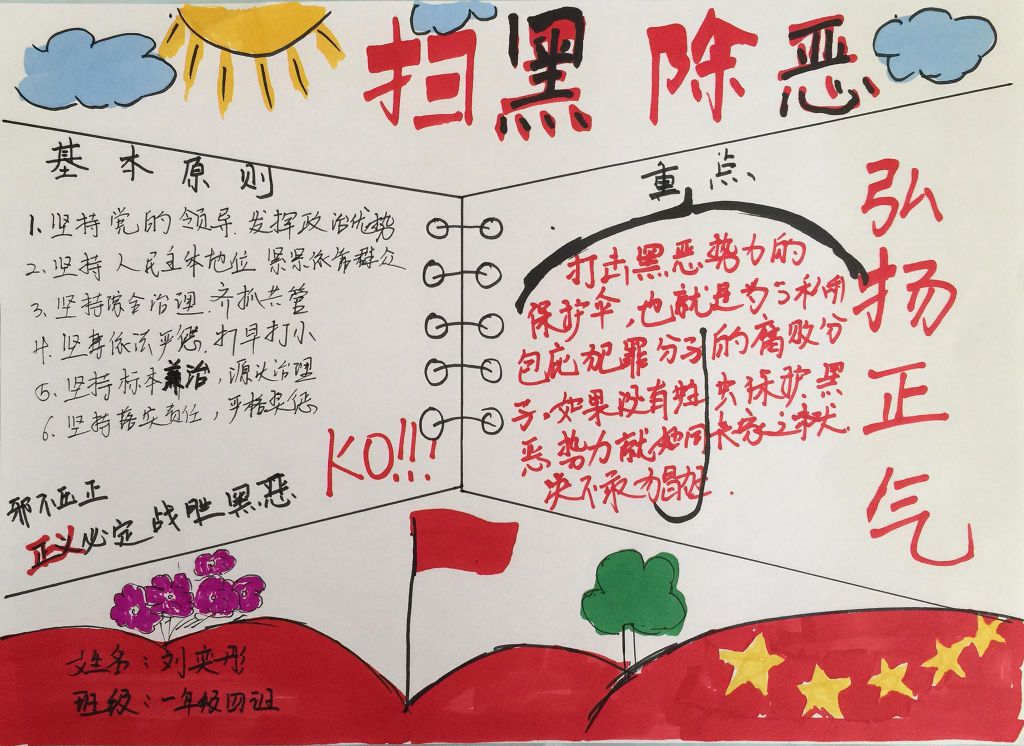 扫黑除恶
基本原则
1.坚持党的领导.发挥政治优势
2.坚持人民主体地位 紧紧依靠群众
3.坚持综合治理.齐抓共管
4.坚持依法严惩.打早打小
5.坚持标本兼治,源头治理
6.坚持落实责任,严格奖惩
KO!!!
邪不压正
正义必定战胜黑恶
重点
打击黑恶势力的
保护伞,也就是参与利用
包庇犯罪分子的腐败分
子.如果没有 保护.黑
恶势力就如同丧家之犬.
决不
弘扬正气
姓名:刘奕彤
班级:一年级四班